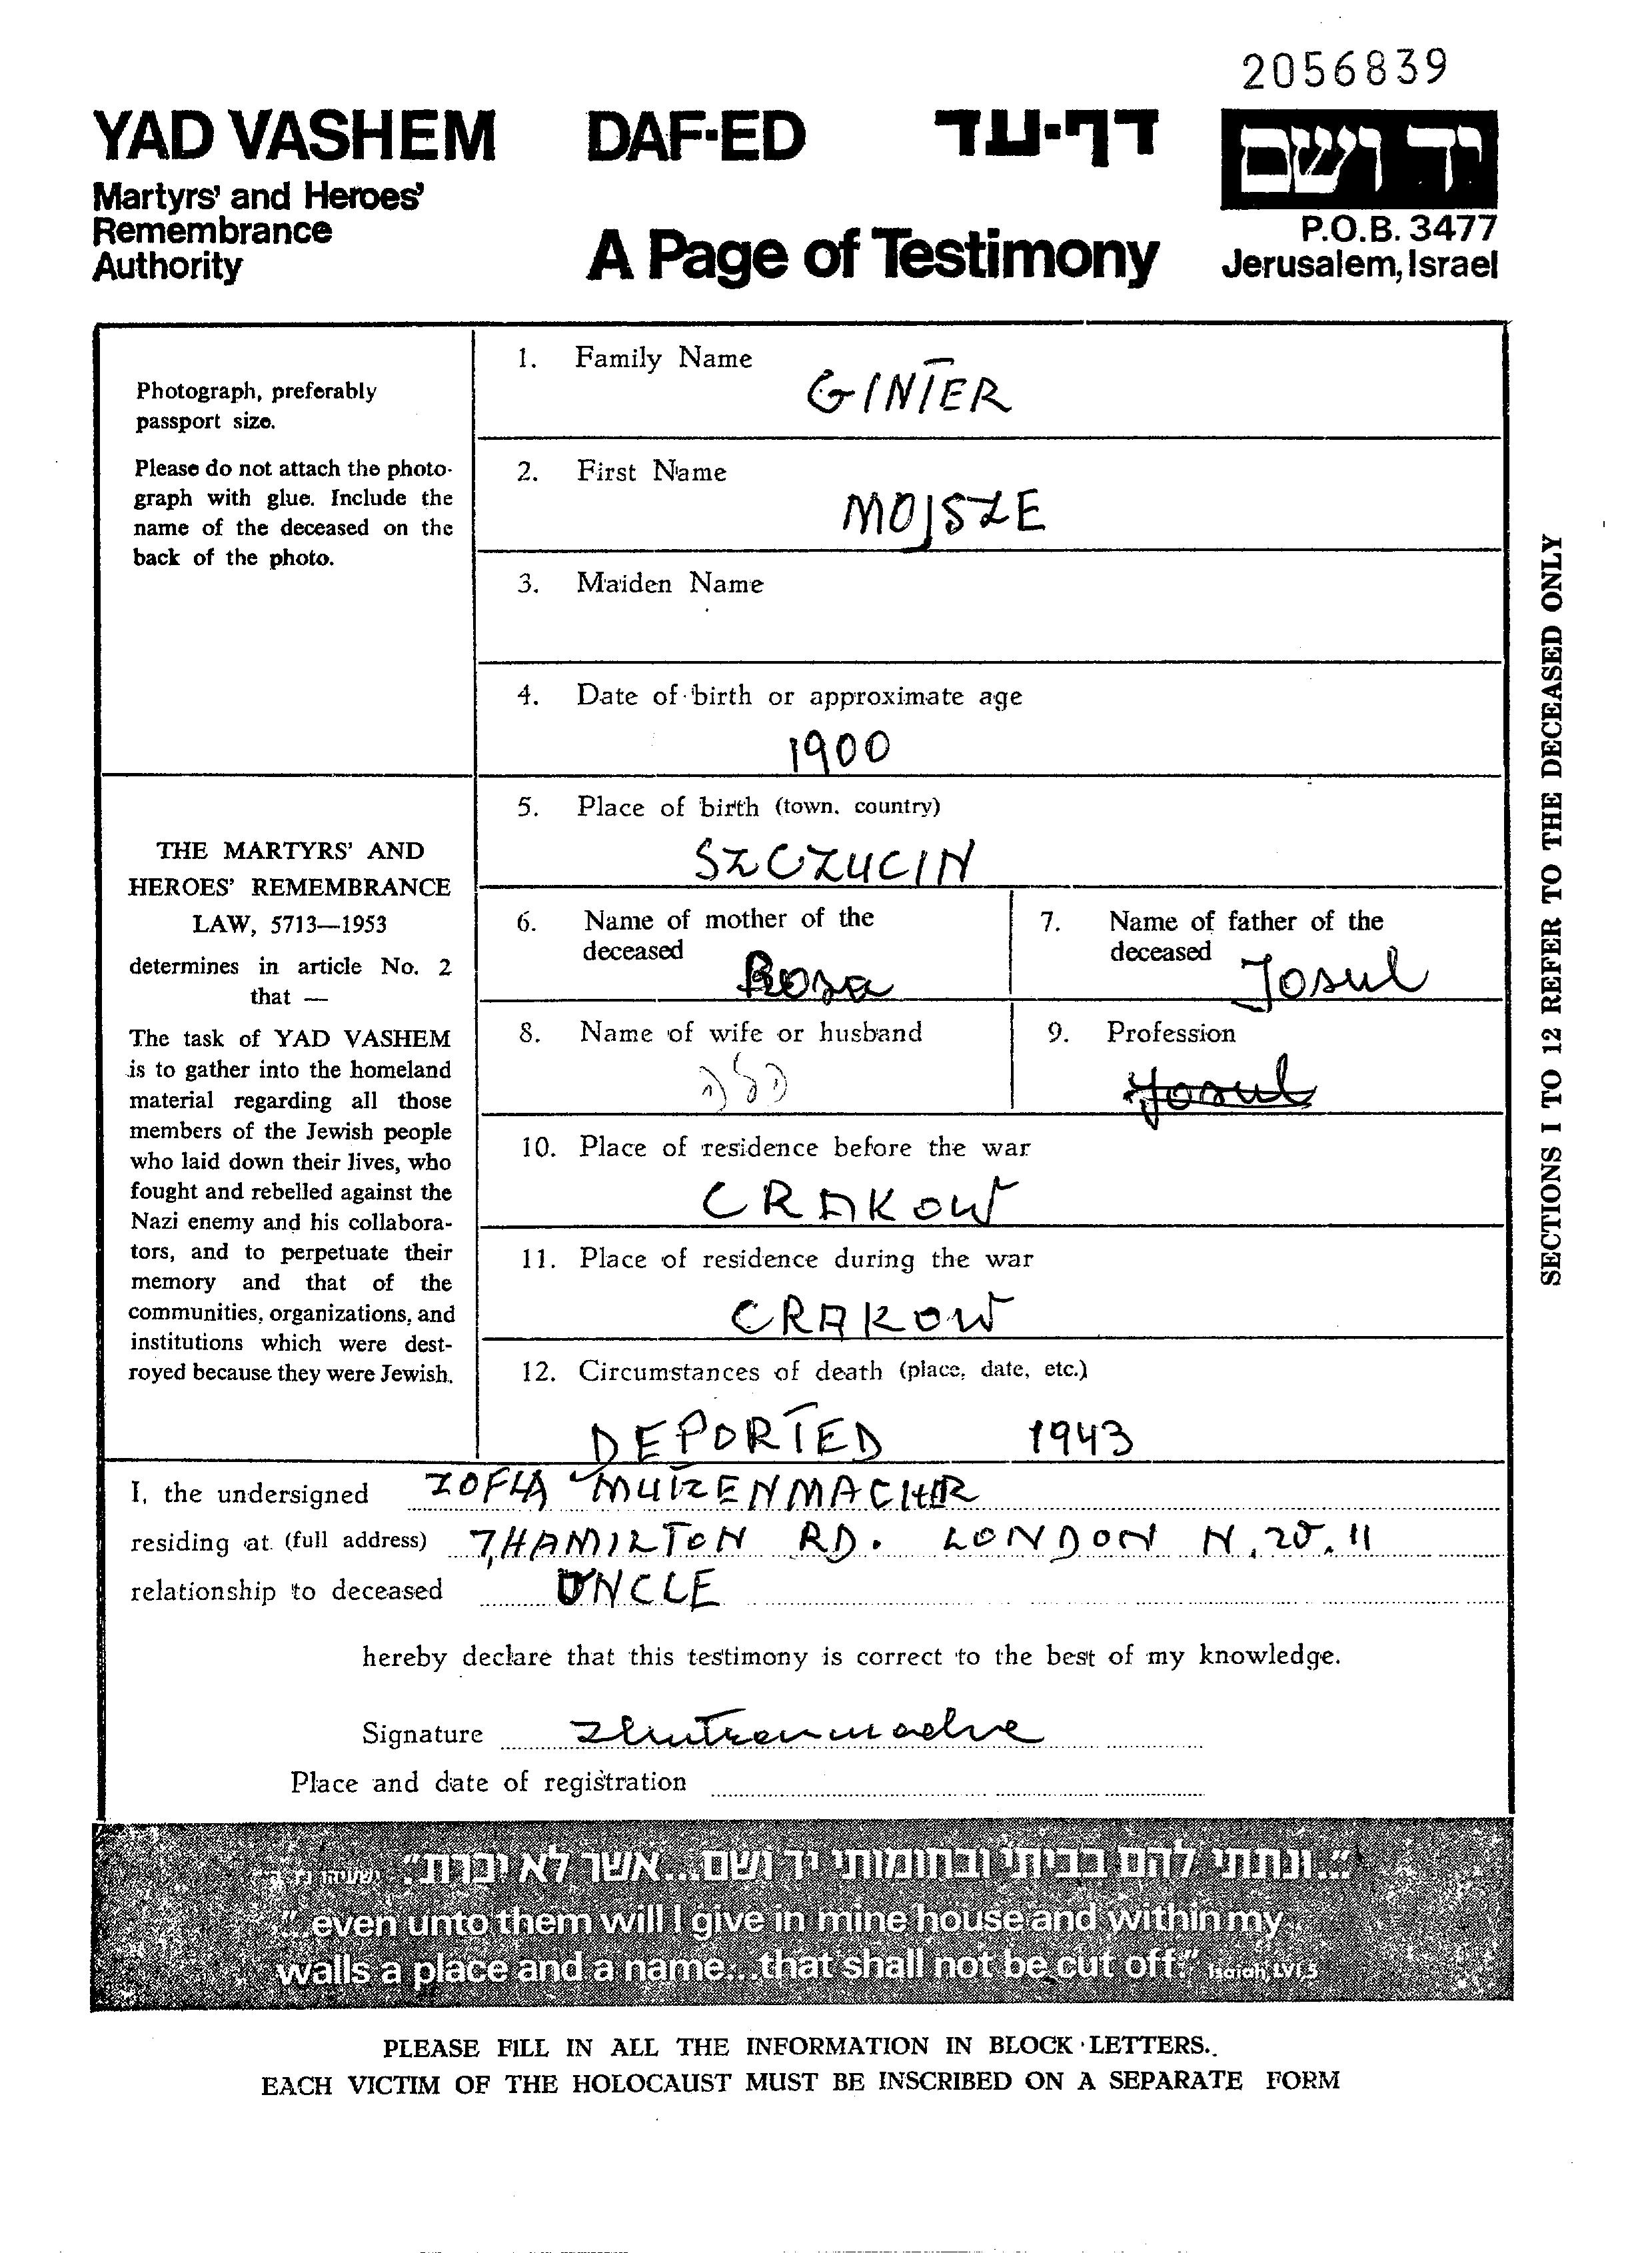 2056839
YAD VASHEM
Martyrs' and Heroes'
Remembrance
Authority
DAF-ED דף-עד
A Page of Testimony
יד ושם
P.O.B. 3477
Jerusalem, Israel
Photograph, preferably
passport size.
Please do not attach the photo-
graph with glue. Include the
name of the deceased on the
back of the photo.
THE MARTYRS' AND
HEROES' REMEMBRANCE
LAW, 5713—1953
determines in article No. 2
that —
The task of YAD VASHEM
is to gather into the homeland
material regarding all those
members of the Jewish people
who laid down their lives, who
fought and rebelled against the
Nazi enemy and his collabora-
tors, and to perpetuate their
memory and that of the
communities, organizations, and
institutions which were dest-
royed because they were Jewish.
1. Family Name
GINTER
2. First Name
MOJSZE
3. Maiden Name
4. Date of birth or approximate age
1900
5. Place of birth (town, country)
SZCZUCIN
6. Name of mother of the
deceased Rosa
7. Name of father of the
deceased Josul
8. Name of wife or husband
הלה
9. Profession
Josul
10. Place of residence before the war
CRAKOW
11. Place of residence during the war
CRAKOW
12. Circumstances of death (place, date, etc.)
DEPORTED 1943
I, the undersigned ZOFIA
residing at (full address) 7, HAMILTON RD. LONDON N.W.11
relationship to deceased UNCLE
hereby declare that this testimony is correct to the best of my knowledge.
Signature
Place and date of registration
"...ונתתי להם בביתי ובחומותי יד ושם...אשר לא יכרת."
"...even unto them will I give in mine house and within my
walls a place and a name...that shall not be cut off." Isaiah, LVI,5
PLEASE FILL IN ALL THE INFORMATION IN BLOCK LETTERS.
EACH VICTIM OF THE HOLOCAUST MUST BE INSCRIBED ON A SEPARATE FORM
SECTIONS 1 TO 12 REFER TO THE DECEASED ONLY